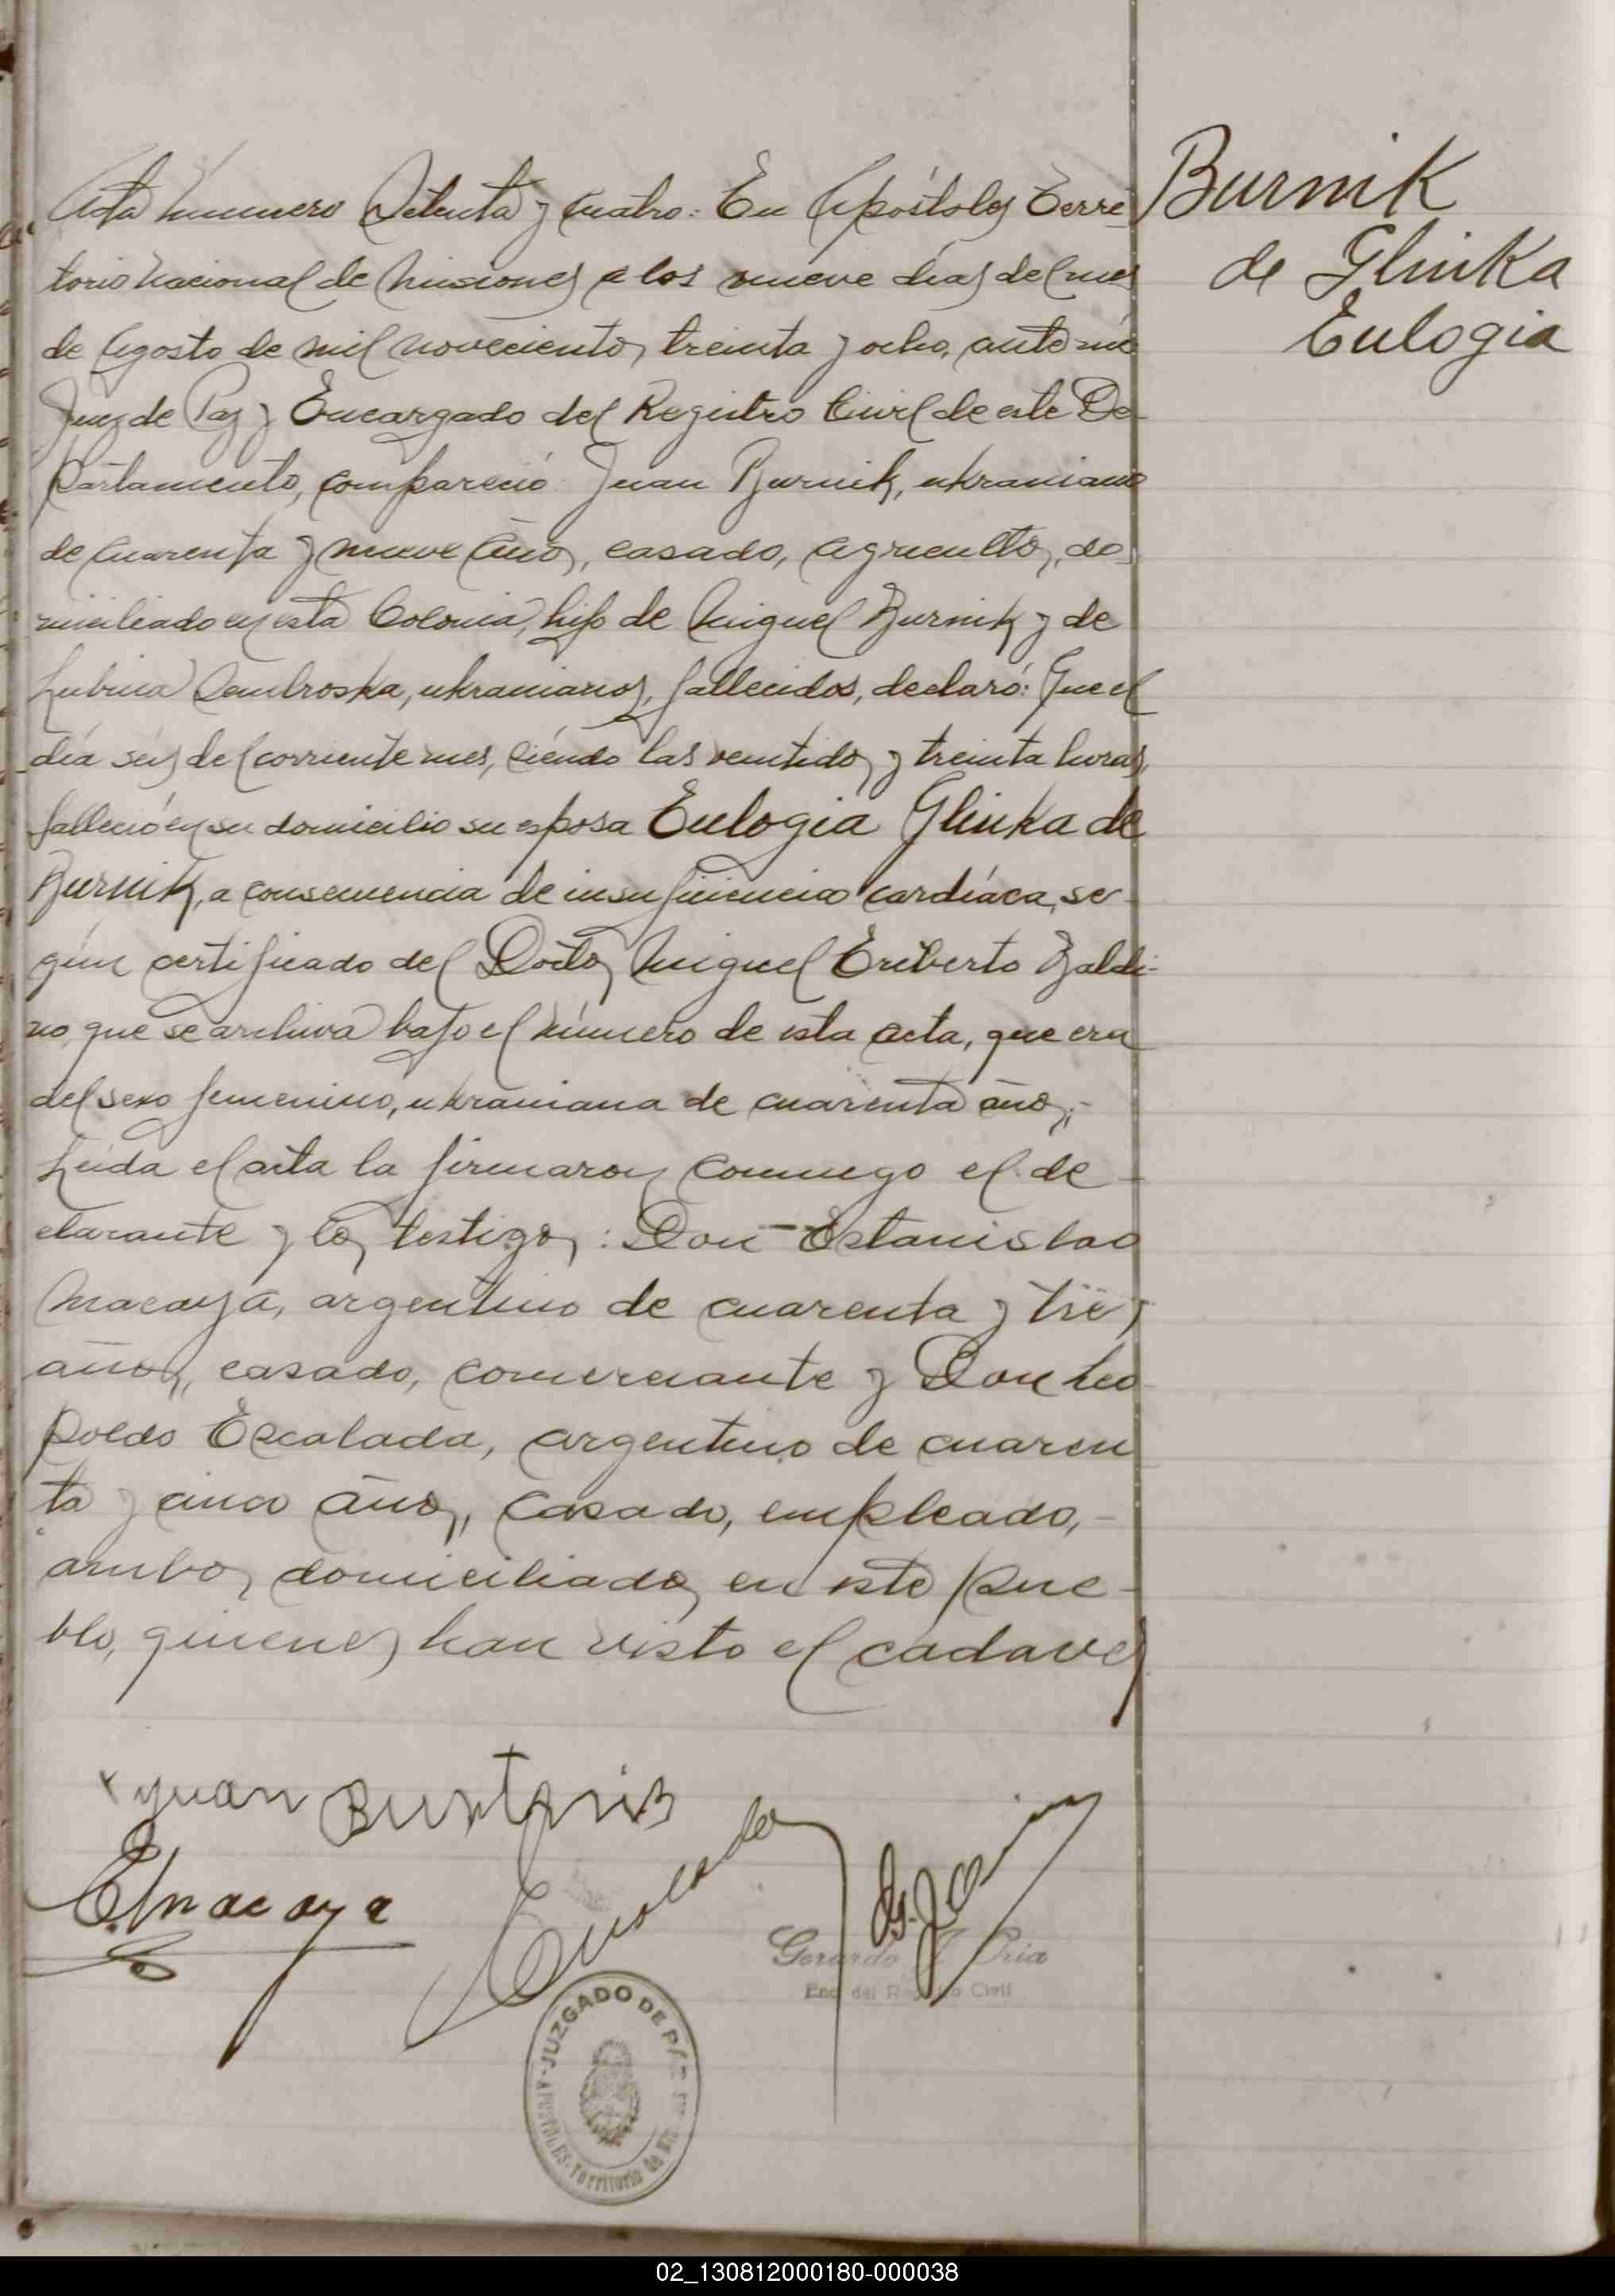 Acta número Setenta y cuatro: En Apóstoles Terri
torio Nacional de Misiones a los nueve días del mes
de Agosto de mil novecientos treinta y ocho, ante mí
Juez de Paz y Encargado del Registro Civil de este De
partamento, compareció: Juan Burnik, ukraniano
de cuarenta y nueve años, casado, agricultor, do
miciliado en esta Colonia, hijo de Miguel Burnik y de
Dembroska, ukranianos, fallecidos, declaró: Que el
día seis del corriente mes, siéndo las ventidos y treinta horas,
falleció en su domicilio su esposa Eulogia Glinka de
Burnik, a consecuencia de insuficiencia cardíaca, se
gún certificado del Doctor Miguel Eriberto Baldi-
no, que se archiva bajo el número de esta acta, que era
del sexo femenino, ukraniana de cuarenta años;-
Leída el acta la firmaron conmigo el de-
clarante y los testigos: Don Estanislao
Macaya, argentino de cuarenta y tres
años, casado, comerciante y Don Leo
poldo Escalada, argentino de cuaren
ta y cinco años, casado, empleado,-
ambos domiciliados en este pue-
blo, quienes han visto el cadaver
Burnik
de Glinka
Eulogia
Juan
E Macaya
Escalada
Gerardo Pria
Enc. del Registro Civil
JUZGADO DE PAZ
APOSTOLES - Territorio de Mis
02_130812000180-000038